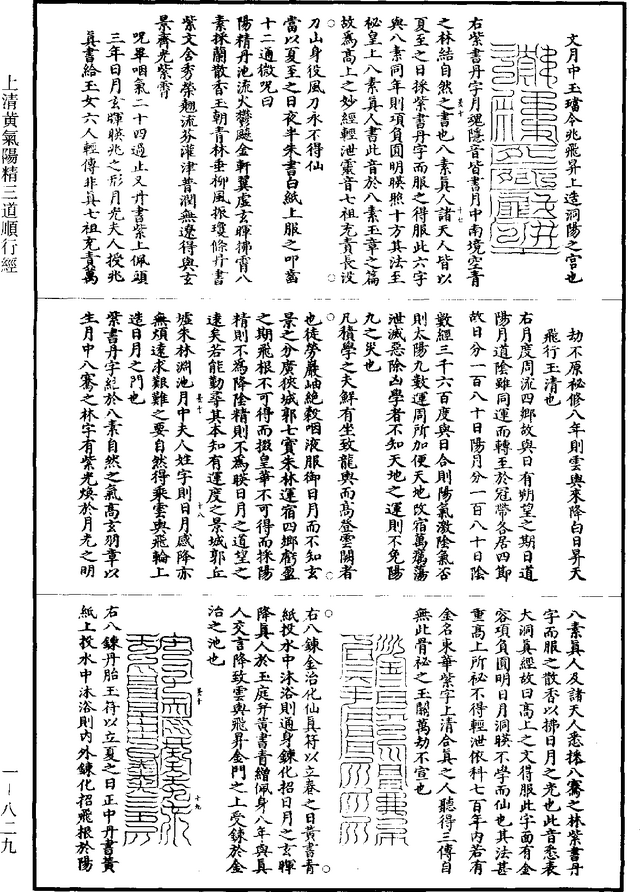 文月中玉璫令兆飛昇上造洞陽之宮也
右紫書丹字月魂隱音皆書月中南境空青
之林結自然之書也八素真人諸天人皆以
夏至之日採紫書丹字而服之得服此六字
與八素同年則項負圓明暎照十方其法至
秘皇上八素真人書此音於八素玉章之篇
故為高上之妙經輕泄靈音七祖充責長没
刀山身役風刀永不得仙
當以夏至之日夜半朱書白紙上服之叩齒
十二通微呪曰
陽精丹池流火鬱飈金軒翼虛玄暉拂霄八
素採蘭散香玉朝青林垂柳風振瓊條丹書
紫文含秀榮翹流芬灌津普潤無遼得與玄
景齊光紫霄
呪畢咽氣二十四過止又丹書紫上佩頭
三年日月玄暉暎兆之形月光夫人授兆
真書給玉女六人輕傳非真七祖充責萬
劫不原祕修八年則雲輿來降白日昇天
飛行玉清也
右月度周流四鄉故與日有朔望之期日道
陽月道陰雖同運而轉至於冠帶各居四節
故日分一百八十日陽月分一百八十日陰
數經三千六百度與日合則陽氣激陰氣否
則太陽九數運周所加便天地改宿萬癘蕩
泄滅惡除凶學者不知天地之運則不免陽
九之災也
凡積學之夫鮮有坐致龍輿而高登雲闕者
也徒勞巖岫絶穀咽液服御日月而不知玄
景之分廣狹城郭七寶朱林運宿四鄉虧盈
之期飛根不可得而掇皇華不可得而採陽
精則不為降陰精則不為暎日月之道望之
遠矣若能勤尋其本知有運度之景城郭丘
墟朱林淵池月中夫人姓字則日月感降亦
無煩遠求艱難之要自然得乘雲輿飛輪上
造日月之門也
紫書丹字結於八素自然之氣高玄羽章以
生月中八騫之林字有紫光煥於月光之明
八素真人及諸天人悉採八騫之林紫書丹
字而服之散香以拂日月之光也此音悉表
大洞真經故曰高上之文得服此字面有金
容項負圓明日月洞暎不學而仙也其法甚
重高上所祕不得輕泄依科七百年内若有
金名東華紫字上清合真之人聽得三傳自
無此骨祕之玉關萬劫不宣也
右八鍊金冶化仙真符以立春之日黃書青
紙投水中沐浴則通身鍊化招日月之玄暉
降真人於玉庭并黃書青繒佩身八年與真
人交言降致雲輿飛昇金門之上受鍊於金
冶之池也
右八鍊丹胎玉符以立夏之日正中丹書黃
紙上投水中沐浴則内外鍊化招飛根於陽
上清黃氣陽精三道順行經
一－八二九